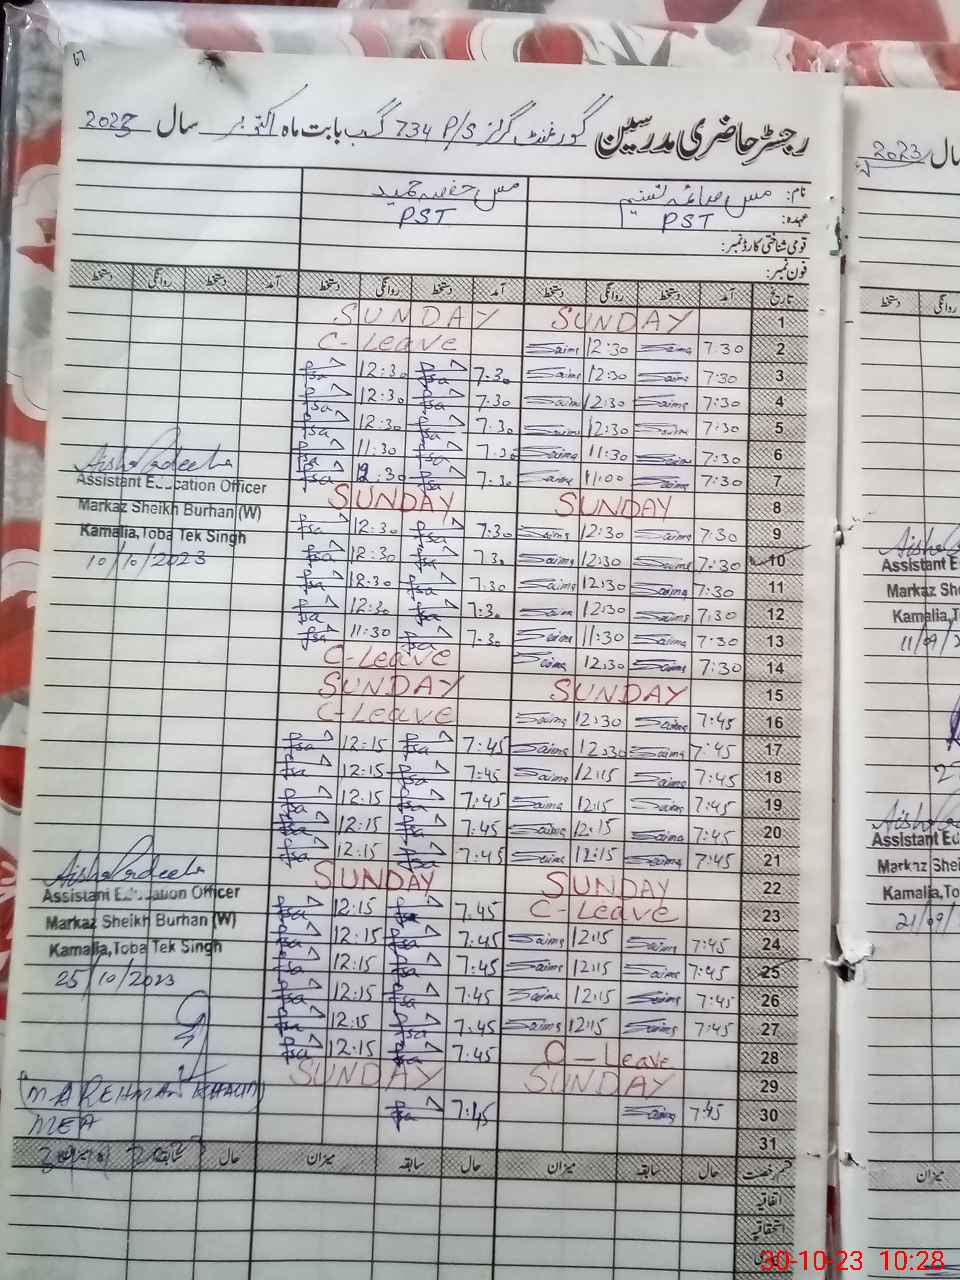 67
رجسٹر حاضری مدرسین گورنمنٹ گرلز P/S 734 گ ب بابت ماہ اکتوبر سال 2023
نام: مس صائمہ تسنیم مس حفصہ حمید
عہدہ: PST PST
قومی شناختی کارڈ نمبر:
فون نمبر:
تاریخ آمد دستخط روانگی دستخط آمد دستخط روانگی دستخط آمد دستخط روانگی دستخط
1 SUNDAY SUNDAY
2 7:30 Saima 12:30 Saima C-Leave
3 7:30 Saima 12:30 Saima 7:30 12:30
4 7:30 Saima 12:30 Saima 7:30 12:30
5 7:30 Saima 12:30 Saima 7:30 12:30
6 7:30 Saima 11:30 Saima 7:30 11:30
7 7:30 Saima 11:00 Saima 7:30 12:30
8 SUNDAY SUNDAY
9 7:30 Saima 12:30 Saima 7:30 12:30
10 7:30 Saima 12:30 Saima 7:30 12:30
11 7:30 Saima 12:30 Saima 7:30 12:30
12 7:30 Saima 12:30 Saima 7:30 12:30
13 7:30 Saima 11:30 Saima 7:30 11:30
14 7:30 Saima 12:30 Saima C-Leave
15 SUNDAY SUNDAY
16 7:45 Saima 12:30 Saima C-LEAVE
17 7:45 Saima 12:30 Saima 7:45 12:15
18 7:45 Saima 12:15 Saima 7:45 12:15
19 7:45 Saima 12:15 Saima 7:45 12:15
20 7:45 Saima 12:15 Saima 7:45 12:15
21 7:45 Saima 12:15 Saima 7:45 12:15
22 SUNDAY SUNDAY
23 C-Leave 7:45 12:15
24 7:45 Saima 12:15 Saima 7:45 12:15
25 7:45 Saima 12:15 Saima 7:45 12:15
26 7:45 Saima 12:15 Saima 7:45 12:15
27 7:45 Saima 12:15 Saima 7:45 12:15
28 C-Leave 7:45 12:15
29 SUNDAY SUNDAY
30 7:45 Saima 7:45
31
قسم رخصت حال سابقہ میزان حال سابقہ میزان حال سابقہ میزان
اتفاقیہ
استحقاقیہ
Assistant Education Officer
Markaz Sheikh Burhan (W)
Kamalia,Toba Tek Singh
10/10/2023
Assistant Education Officer
Markaz Sheikh Burhan (W)
Kamalia,Toba Tek Singh
25/10/2023
MEA
سال 2023
دستخط روانگی
Assistant E
Markaz She
Kamalia,T
11/09/2
Assistant Ed
Markaz Shei
Kamalia,To
21/09/
میزان
30-10-23 10:28